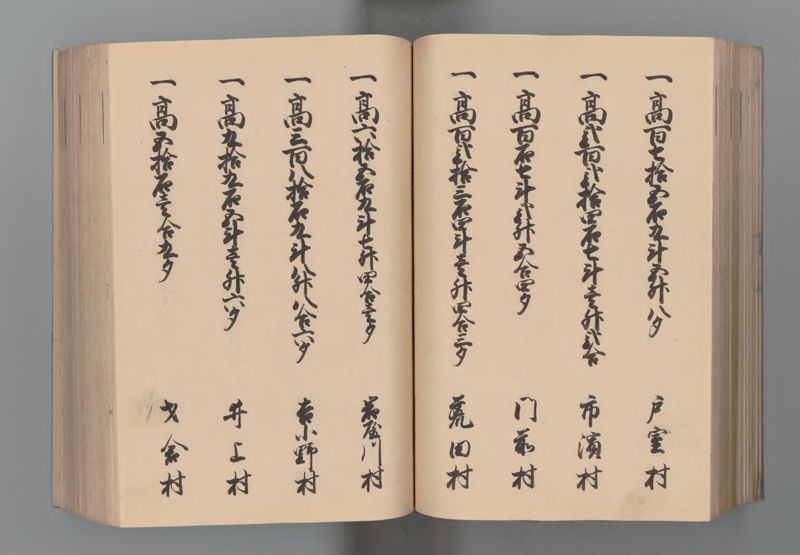 一高百七拾五石九斗五升八夕 戸室村
一高弐百弐拾四石七斗壱升弐合 市濱村
一高百石七斗弐升五合四夕 門前村
一高百弐拾三石四斗壱升四合三夕 荒田村
一高六拾五石九斗七升四合壱夕 岩屋川村
一高三百八拾石九斗八升八合六夕 吉小野村
一高九拾九石五斗壱升六夕 井上村
一高五拾石壱合九夕 倉村